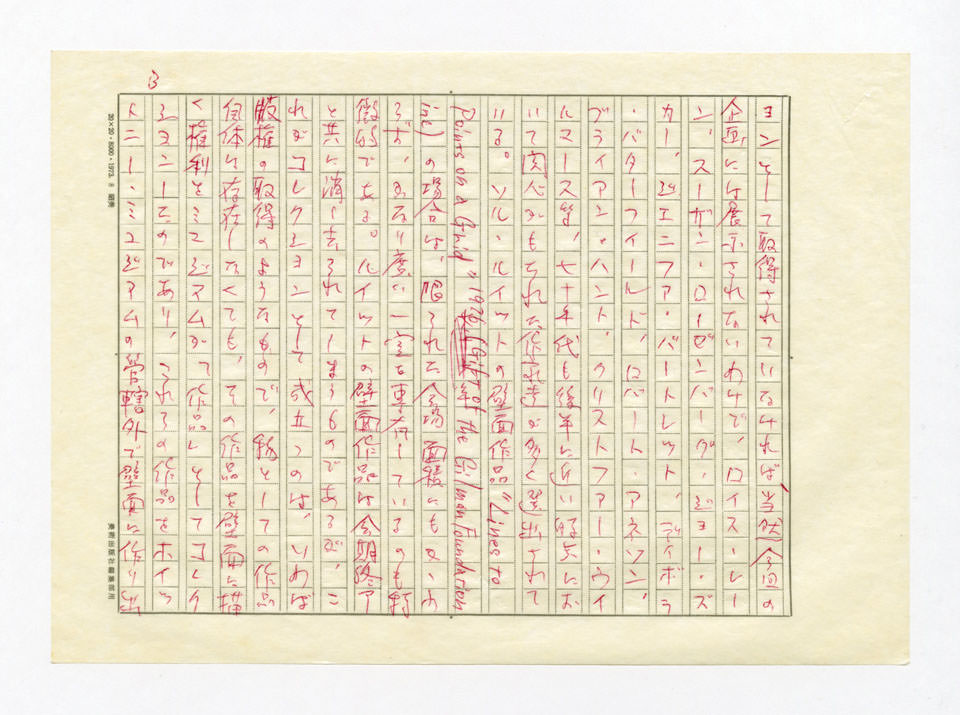 3
ョンとして取得されていなければ、当然今回の
企画には展示されないわけで、ロイス・レー
ン、スーザン・ローゼンバーグ、ジョー・ズ
カー、ジェニファ・バートレット、デイボラ
・バターフィールド、ロバート・アネソン、
ブライアン・ハント、クリストファー・ウィ
ルマース等、七十年代も後半に近い時点にお
いて関心がもたれた作家達が多く選出されて
いる。ソル・ルイットの壁面作品 "Lines to
Points on a Grid" 1976 (Gift of the Gilman Foundation
inc) の場合は、限られた会場面積にもかゝわ
らず、かなり広い一室を専有しているのも特
徴的である。ルイットの壁面作品は会期終了
と共に消し去られてしまうものであるが、こ
れがコレクションとして成立つのは、いわば
版権の取得のようなもので、物としての作品
自体は存在しなくても、その作品を壁面に描
く権利をミュジアムが作品としてコレク
ションしたのであり、これらの作品をホイッ
トニー・ミュージアムの管轄外で壁面に作り出
20×20・5000・1973. 8 錦秀
美術出版社編集部用